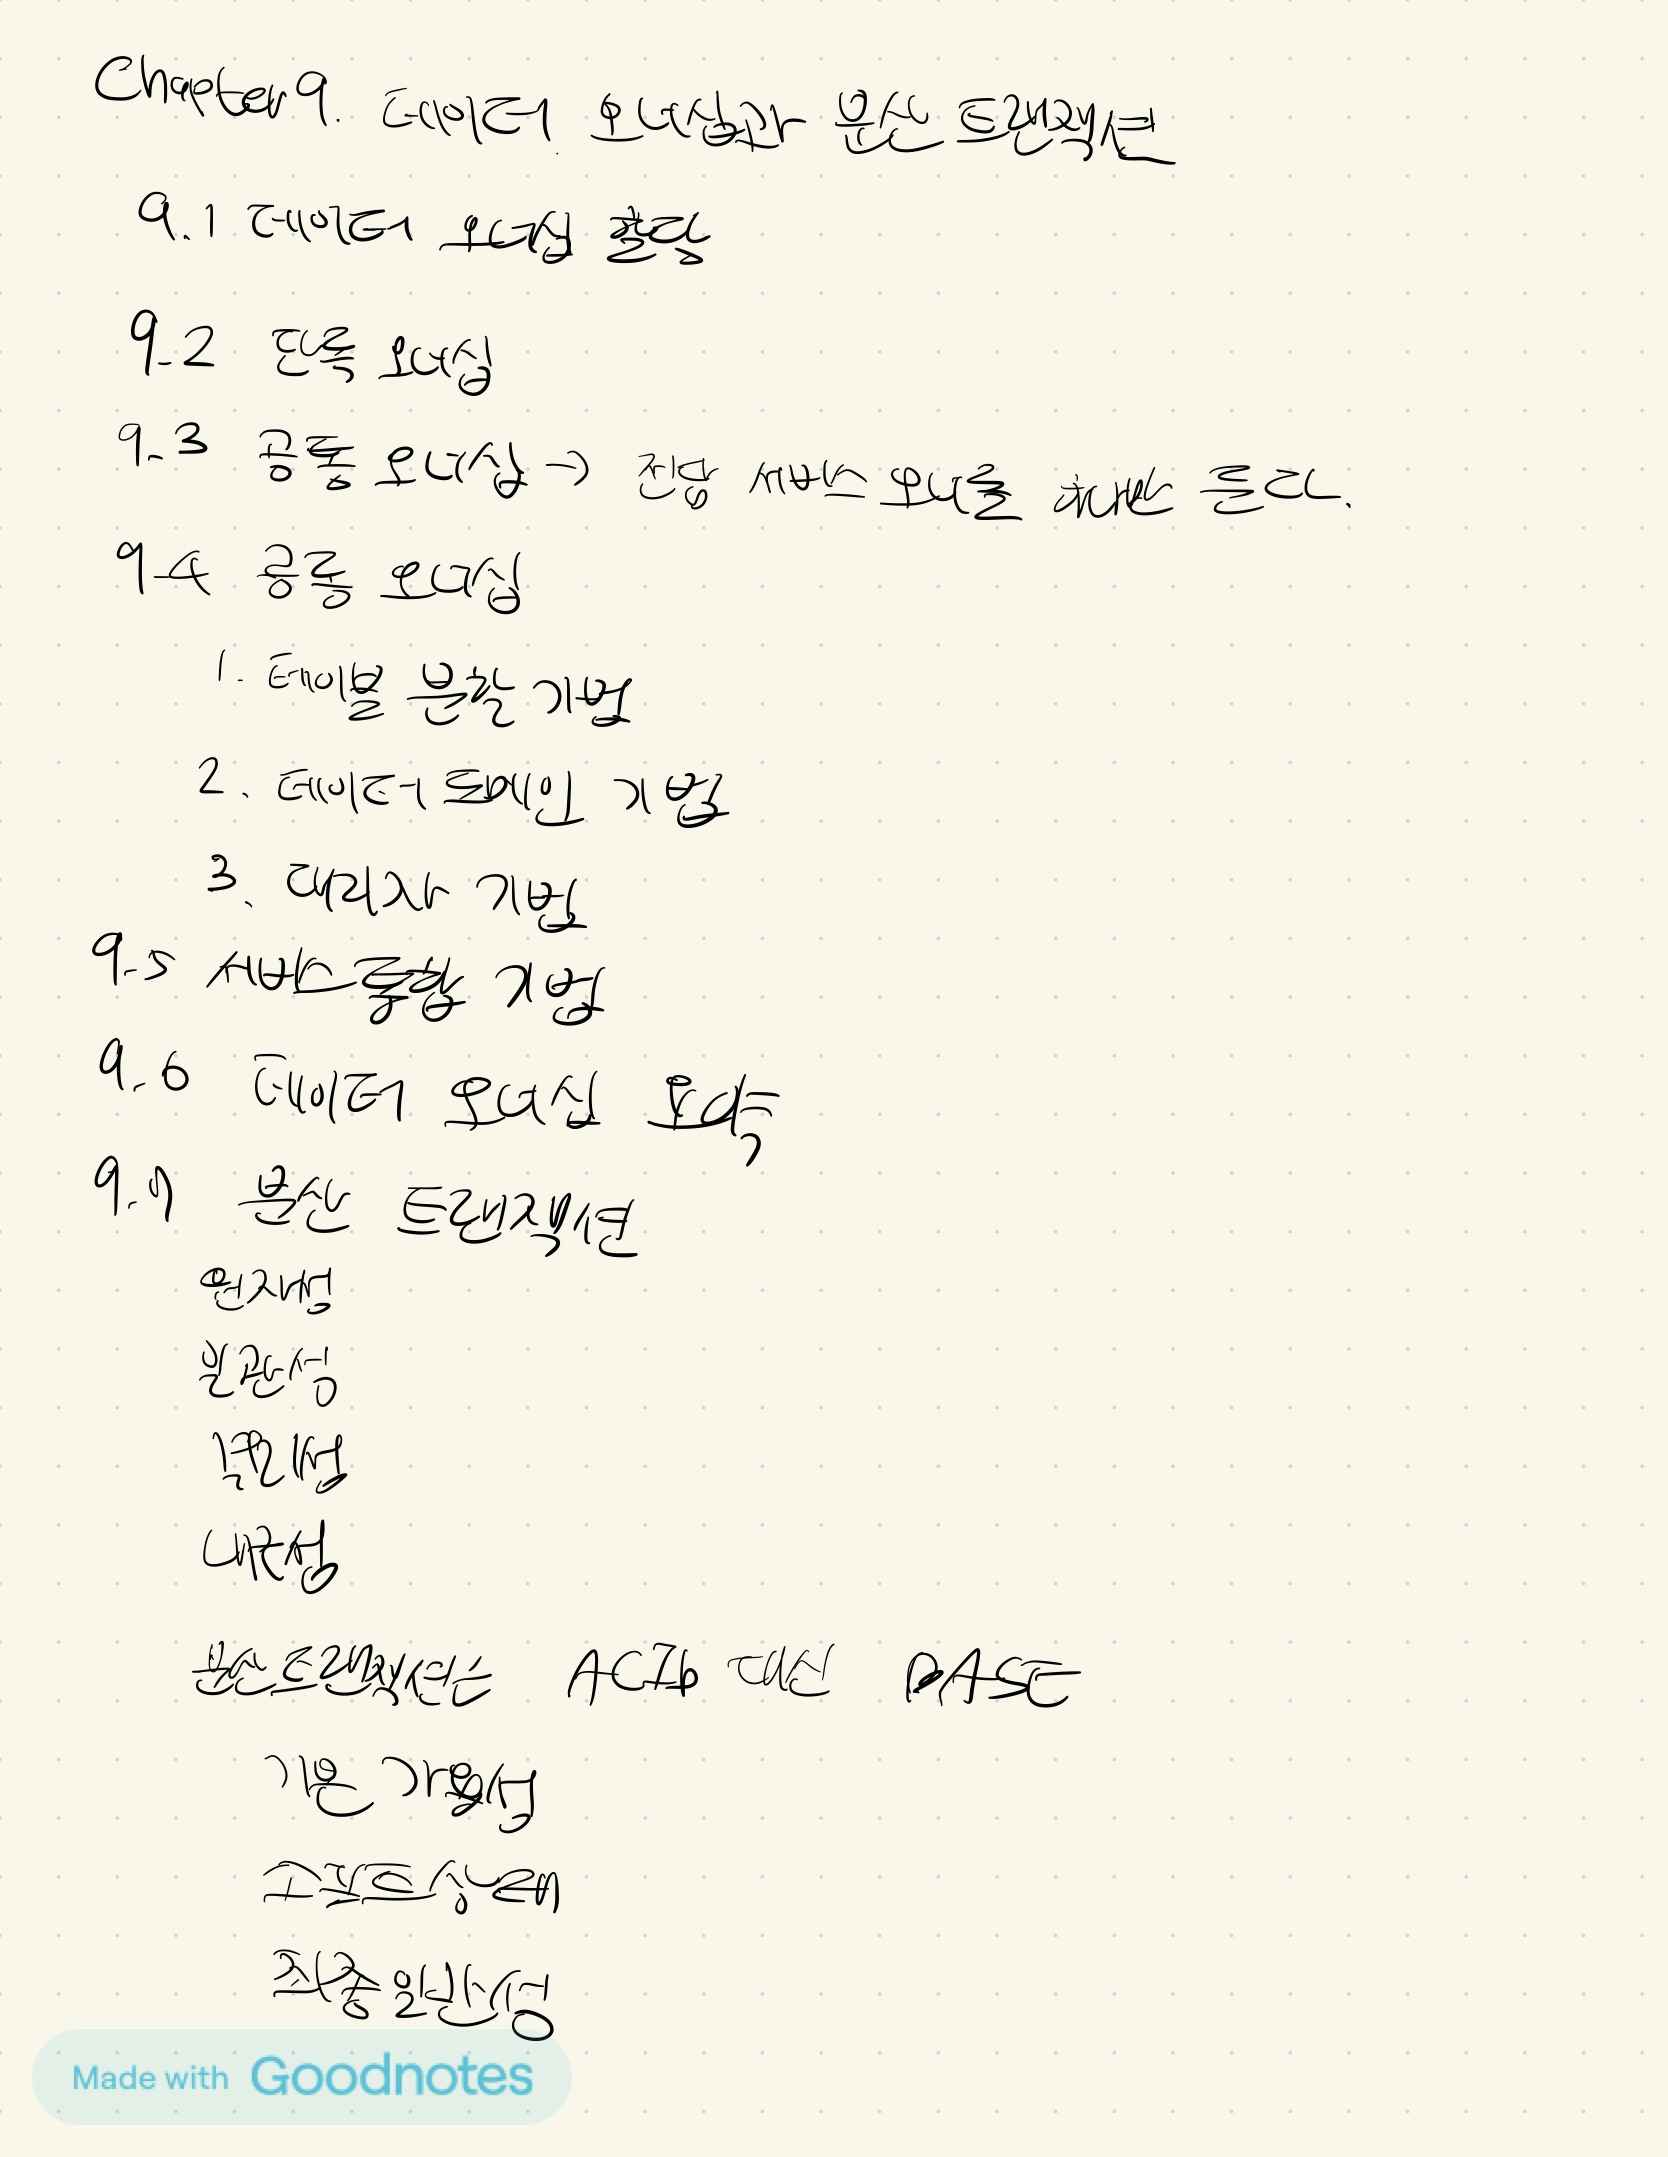 Chapter 9. 데이터 오너십과 분산 트랜잭션
9.1 데이터 오너십 할당
9.2 단독 오너십
9.3 공통 오너십 → 전담 서비스 오너를 하나만 둔다.
9.4 공동 오너십
1. 테이블 분할 기법
2. 데이터 도메인 기법
3. 대리자 기법
9.5 서비스 통합 기법
9.6 데이터 오너십 요약
9.7 분산 트랜잭션
원자성
일관성
격리성
내구성
분산 트랜잭션은 ACID 대신 BASE
기본 가용성
소프트 상태
최종 일관성
Made with Goodnotes